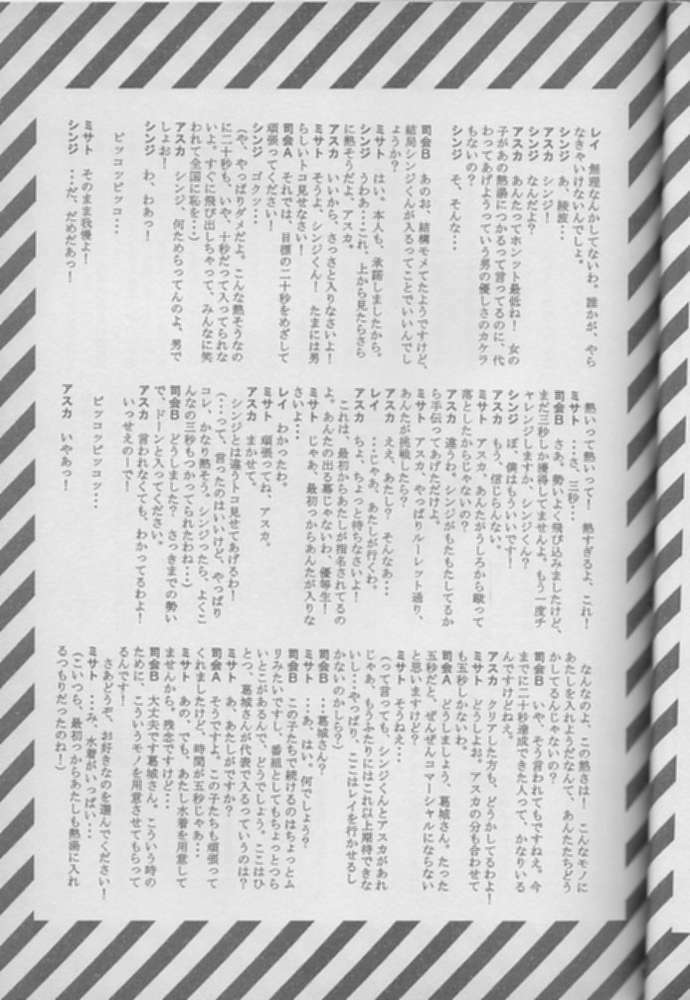 レイ　無理なんかしてないわ。誰かが、やら
なきゃいけないんでしょ。
シンジ　あ、綾波…
アスカ　シンジ！
シンジ　なんだよ？
アスカ　あんたってホンット最低ね！　女の
子があの熱湯につかるって言ってるのに、代
わってあげようっていう男の優しさのカケラ
もないの？
シンジ　そ、そんな…
司会B　あのお、結構モメてたようですけど、
結局シンジくんが入るってことでいいんでし
ょうか？
ミサト　はい。本人も、承諾しましたから。
シンジ　うわあ…これ、上から見たらさら
に熱そうだよ、アスカ。
アスカ　いいから、さっさと入りなさいよ！
ミサト　そうよ、シンジくん！　たまには男
らしいトコ見せなさい！
司会A　それでは、目標の二十秒をめざして
頑張ってください！
シンジ　ゴクッ…
（や、やっぱりダメだよ。こんな熱そうなの
に二十秒も、いや、十秒だって入ってられな
いよ。すぐに飛び出しちゃって、みんなに笑
われて全国に恥を…）
アスカ　シンジ、何ためらってんのよ、男で
しょお！
シンジ　わ、わあっ！
ピッコッピッコ…
ミサト　そのまま我慢よ！
シンジ　…だ、だめだあっ！
熱いって熱いって！　熱すぎるよ、これ！
ミサト　…さ、三秒…
司会B　さあ、勢いよく飛び込みましたけど、
まだ三秒しか獲得してませんよ。もう一度チ
ャレンジしますか、シンジくん？
シンジ　ぼ、僕はもういいです！
アスカ　もう、信じらんない。
ミサト　アスカ、あんたがうしろから蹴って
落としたからじゃないの？
アスカ　違うわ。シンジがもたもたしてるか
ら手伝ってあげただけよ。
ミサト　アスカ、やっぱりルーレット通り、
あんたが挑戦したら？
アスカ　ええ、あたし？　そんなあ…
レイ　…じゃあ、あたしが行くわ。
アスカ　ちょ、ちょっと待ちなさいよ！
これは、最初からあたしが指名されてるの
よ。あんたの出る幕じゃないわ、優等生！
ミサト　じゃあ、最初っからあんたが入りな
さいよ…
レイ　わかったわ。
ミサト　頑張ってね、アスカ。
アスカ　まかせて。
シンジとは違うトコ見せてあげるわ！
（…って、言ったのはいいけど、やっぱり
コレ、かなり熱そう。シンジったら、よくこ
んなの三秒もつかってられたわね…）
司会B　どうしました？　さっきまでの勢い
で、ドーンと入ってください。
アスカ　言われなくても、わかってるわよ！
いっせえのーで！
ピッコッピッコッ…
アスカ　いやあっ！
なんなのよ、この熱さは！　こんなモノに
あたしを入れようだなんて、あんたたちどう
かしてるんじゃないの？
司会B　いや、そう言われてもですねえ。今
までに二十秒達成できた人って、かなりいる
んですけどねえ。
アスカ　クリアした方も、どうかしてるわよ！
ミサト　どうしよお。アスカの分も合わせて
も五秒しかないわ。
司会A　どうしましょう、葛城さん。たった
五秒だと、ぜんぜんコマーシャルにならない
と思いますけど？
ミサト　そうねえ…
（って言っても、シンジくんとアスカがあれ
じゃあ、もうふたりにはこれ以上期待できな
いし…やっぱり、ここはレイを行かせるし
かないのかしら？）
司会B　…葛城さん？
ミサト　…あ、はい。何でしょう？
司会B　この子たちで続けるのはちょっとム
リみたいですし、番組としてもちょっとつら
いとこがあるんで、どうでしょう。ここはひ
とつ、葛城さんが代表で入るっていうのは？
ミサト　あ、あたしがですか？
司会A　そうですよ。この子たちも頑張って
くれましたけど、時間が五秒じゃあ…
ミサト　あの、でも、あたし水着を用意して
ませんから。残念ですけど…
司会B　大丈夫です葛城さん。こういう時の
ために、こういうモノを用意させてもらって
るんです！
さあどうぞ、お好きなのを選んでください！
ミサト　…み、水着がいっぱい…
（こいつら、最初っからあたしも熱湯に入れ
るつもりだったのね！）